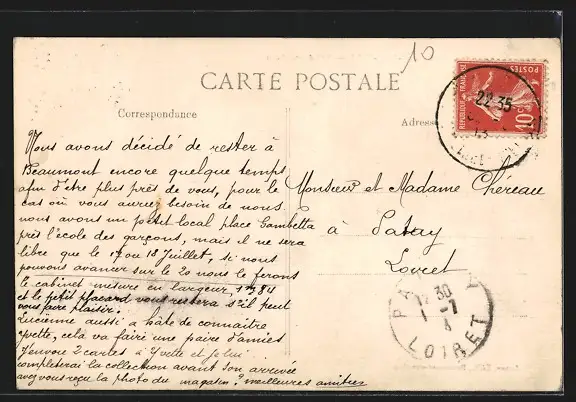 10
CARTE POSTALE
Correspondance
Adresse
RÉPUBLIQUE FRANÇAISE
POSTES
10c
22 35
13
Nous avons décidé de rester à
Beaumont encore quelque temps
afin d'être plus près de vous, pour le
cas où vous auriez besoin de nous.
nous avons un petit local place Gambetta
près l'école des garçons, mais il ne sera
libre que le 17 ou 18 Juillet, si nous
pouvons avancer sur le 20 nous le ferons
le cabinet mesure en largeur 1m84
et le petit placard vous restera s'il peut
vous faire plaisir.
Lucienne aussi a hâte de connaitre
Yvette, cela va faire une paire d'amies
J'envoie 2 cartes à Yvette et je lui
completerai la collection avant son arrivée
avez vous reçu la photo du magasin? meilleures amitiés
Monsieur et Madame Chéreau
à Patay
Loiret
PA
12 30
1 -7
LOIRET